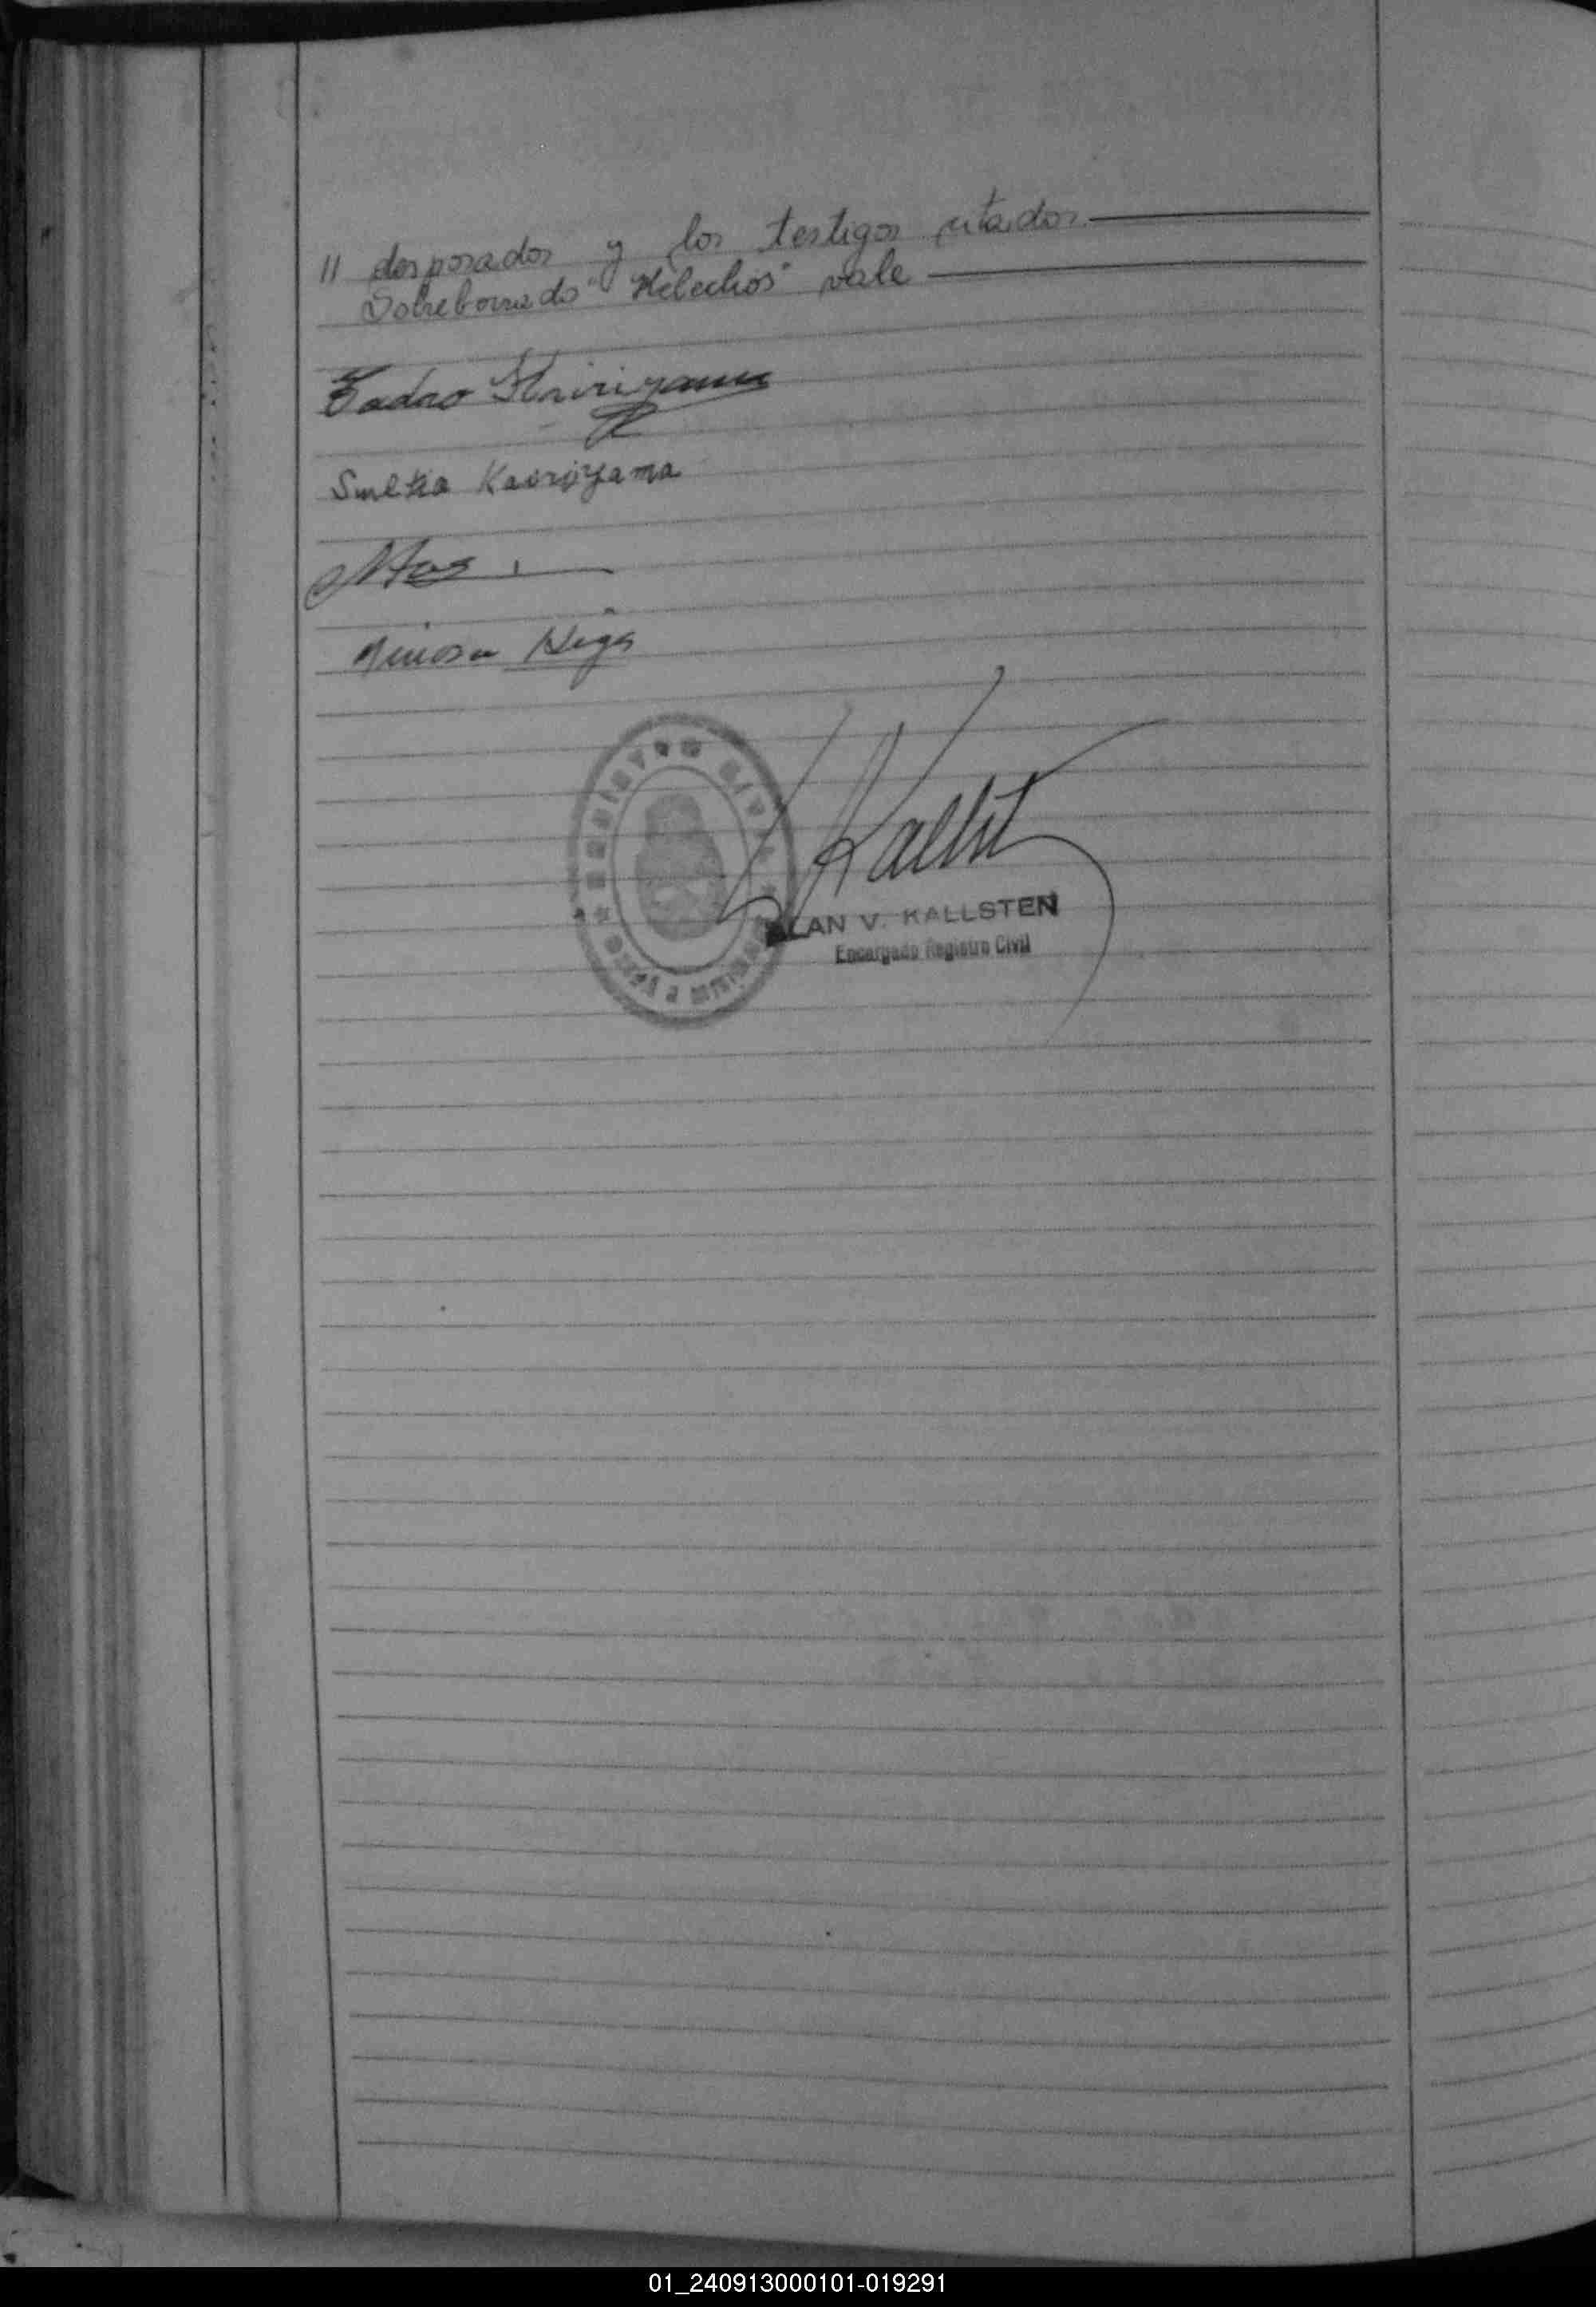 // desposados y los testigos citados
Sobreborrado "Helechos" vale
Tadao Kairiyama
Kairiyama
Higa
REGISTRO CIVIL
Kallst
ALAN V. KALLSTEN
Encargado Registro Civil
01_240913000101-019291